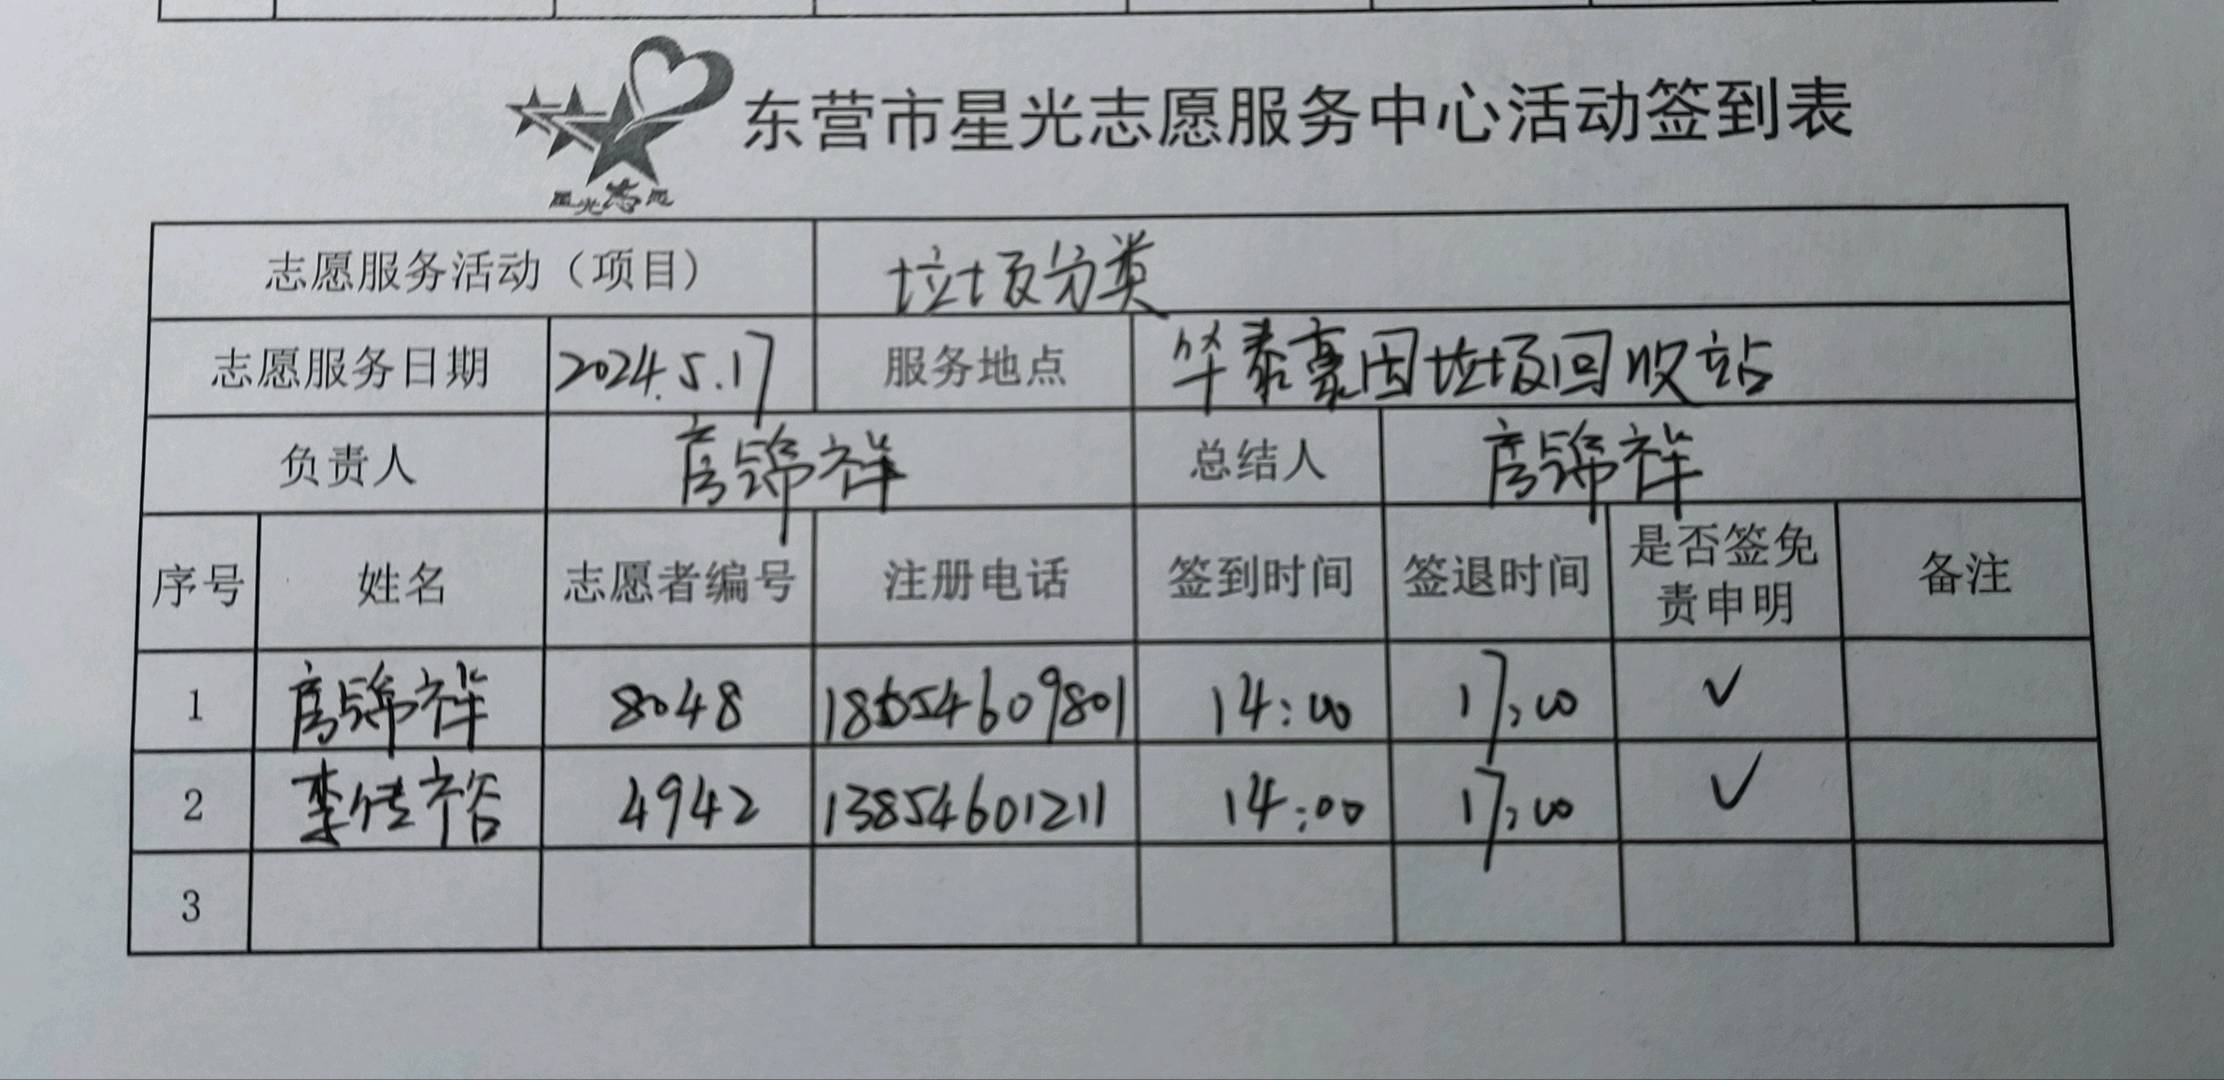 星光志愿
东营市星光志愿服务中心活动签到表
志愿服务活动（项目） 垃圾分类
志愿服务日期 2024.5.17 服务地点 华泰豪园垃圾回收站
负责人 房锦祥 总结人 房锦祥
序号 姓名 志愿者编号 注册电话 签到时间 签退时间 是否签免责申明 备注
1 房锦祥 8048 14:00 17:00 ✓
2 李传裕 4942 13854601211 14:00 17:00 ✓
3